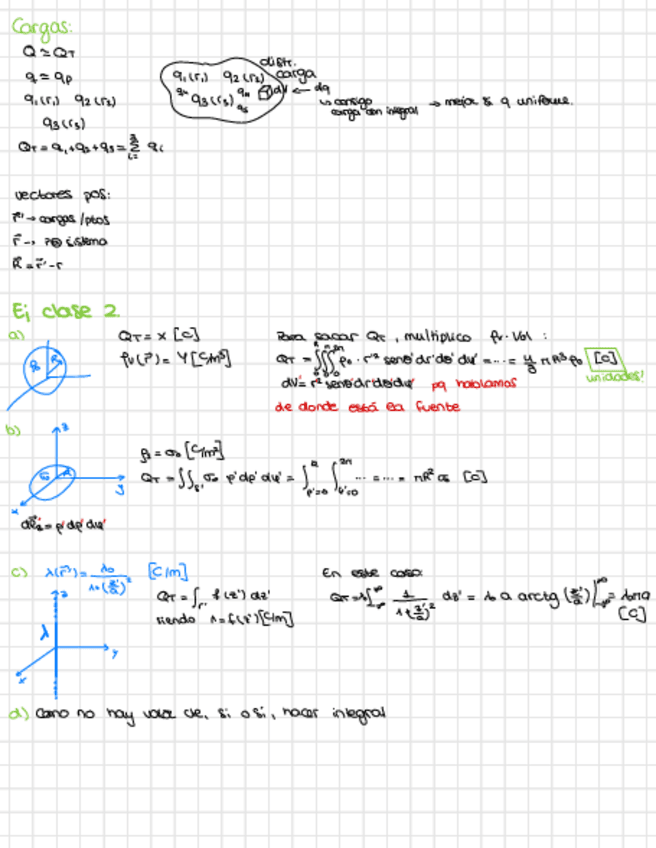 Cargas:
Q ≃ QT
q ≃ qp
q1(r1) q2(r2)
q3(r3)
QT = q1+q2+q3 = Σ qi
distr. carga
q1(r1) q2(r2)
q3(r3)
dV ← dq
↳ consigo carga con integral → mejor si q uniforme.
vectores pos:
r⃗' → cargas/ptos
r⃗ →
sistema
R⃗ = r⃗'-r
Ej clase 2.
a)
QT = x [C]
ρv(r⃗) = Y [C/m³]
Para sacar QT, multiplico ρv·Vol :
QT = ∭ ρ0 · r'² senθ' dr' dθ' dφ' = ... = 4/3 π R³ ρ0 [C]
unidades!
dV' = r'² senθ' dr' dθ' dφ' pq hablamos
de donde está la fuente
b)
z
y
x
ρs = σ0 [C/m²]
QT = ∬s' σ0 ρ' dρ' dφ' = ∫ρ'=0^R ∫φ'=0^2π ... = ... = πR² σ0 [C]
ds' = ρ' dρ' dφ'
c) λ(r⃗') = λ0 / 1+(z'/a)² [C/m]
z
λ
y
x
QT = ∫Γ' f(z') dz'
siendo λ = f(z') [C/m]
En este caso:
QT = λ0 ∫-∞^∞ 1 / 1+(z'/a)² dz' = λ0 a arctg (z'/a) |-∞^∞ = λ0πa
[C]
d) Como no hay valor cte, si o si, hacer integral